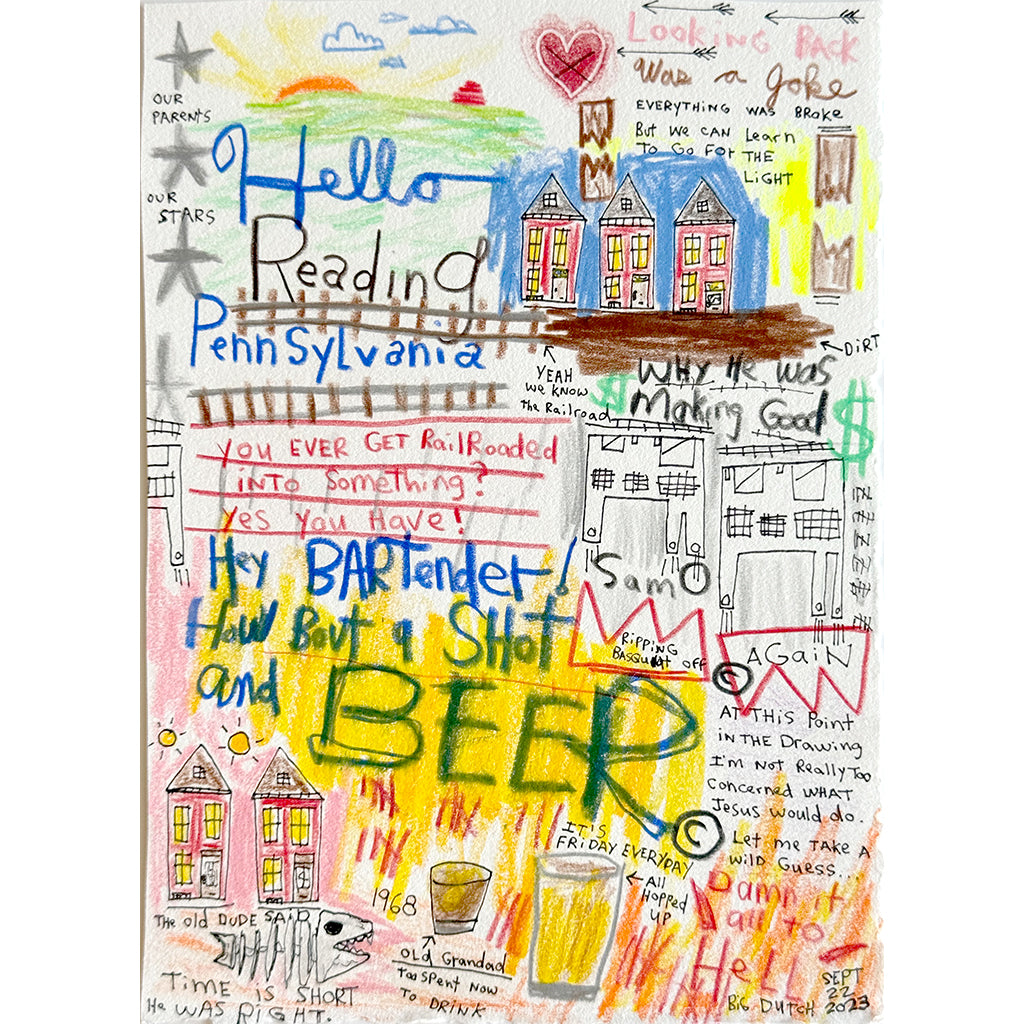 Looking Back
Was a Joke
EVERYTHING WAS BROKE
But we can Learn
To Go For THE
LIGHT
OUR
PARENTS
OUR
STARS
Hello
Reading
PennSylvania
DIRT
YEAH
we know
the Railroad
WHY He was
Making Good
$
$
You EVER GET RailRoaded
iNTO Something?
Yes You Have!
Hey BARTender!
How Bout a SHOT
and
BEER
SamO
RiPPiNG
BASQuiAT OFF
AGaiN
©
AT THiS Point
iN THE Drawing
I'm Not Really Too
Concerned WHAT
Jesus would do.
Let me TAKE A
WiLD GUESS...
Damn it
all to
Hell
©
IT'S
FRiDAY EVERYDAY
All
Hopped
UP
1968
OLD Grandad
Too Spent Now
To DRiNK
The old DUDE SAiD
TiME iS SHORT
He WAS RiGHT.
BiG DUTCH
SEPT
22
2023